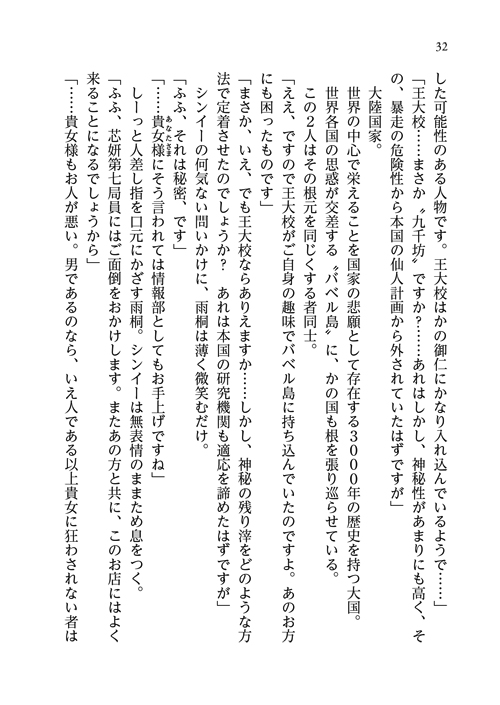 32
した可能性のある人物です。王大校はかの御仁にかなり入れ込んでいるようで……」
「王大校……まさか〝九千坊〟ですか？……あれはしかし、神秘性があまりにも高く、そ
の、暴走の危険性から本国の仙人計画から外されていたはずですが」
大陸国家。
世界の中心で栄えることを国家の悲願として存在する3000年の歴史を持つ大国。
世界各国の思惑が交差する〝バベル島〟に、かの国も根を張り巡らせている。
この2人はその根元を同じくする者同士。
「ええ、ですので王大校がご自身の趣味でバベル島に持ち込んでいたのですよ。あのお方
にも困ったものです」
「まさか、いえ、でも王大校ならありえますか……しかし、神秘の残り滓をどのような方
法で定着させたのでしょうか？　あれは本国の研究機関も適応を諦めたはずですが」
シンイーの何気ない問いかけに、雨桐は薄く微笑むだけ。
「ふふ、それは秘密、です」
「……貴女様にそう言われては情報部としてもお手上げですね」
あなたさま
しーっと人差し指を口元にかざす雨桐。シンイーは無表情のままため息をつく。
「ふふ、芯妍第七局員にはご面倒をおかけします。またあの方と共に、このお店にはよく
来ることになるでしょうから」
「……貴女様もお人が悪い。男であるのなら、いえ人である以上貴女に狂わされない者は